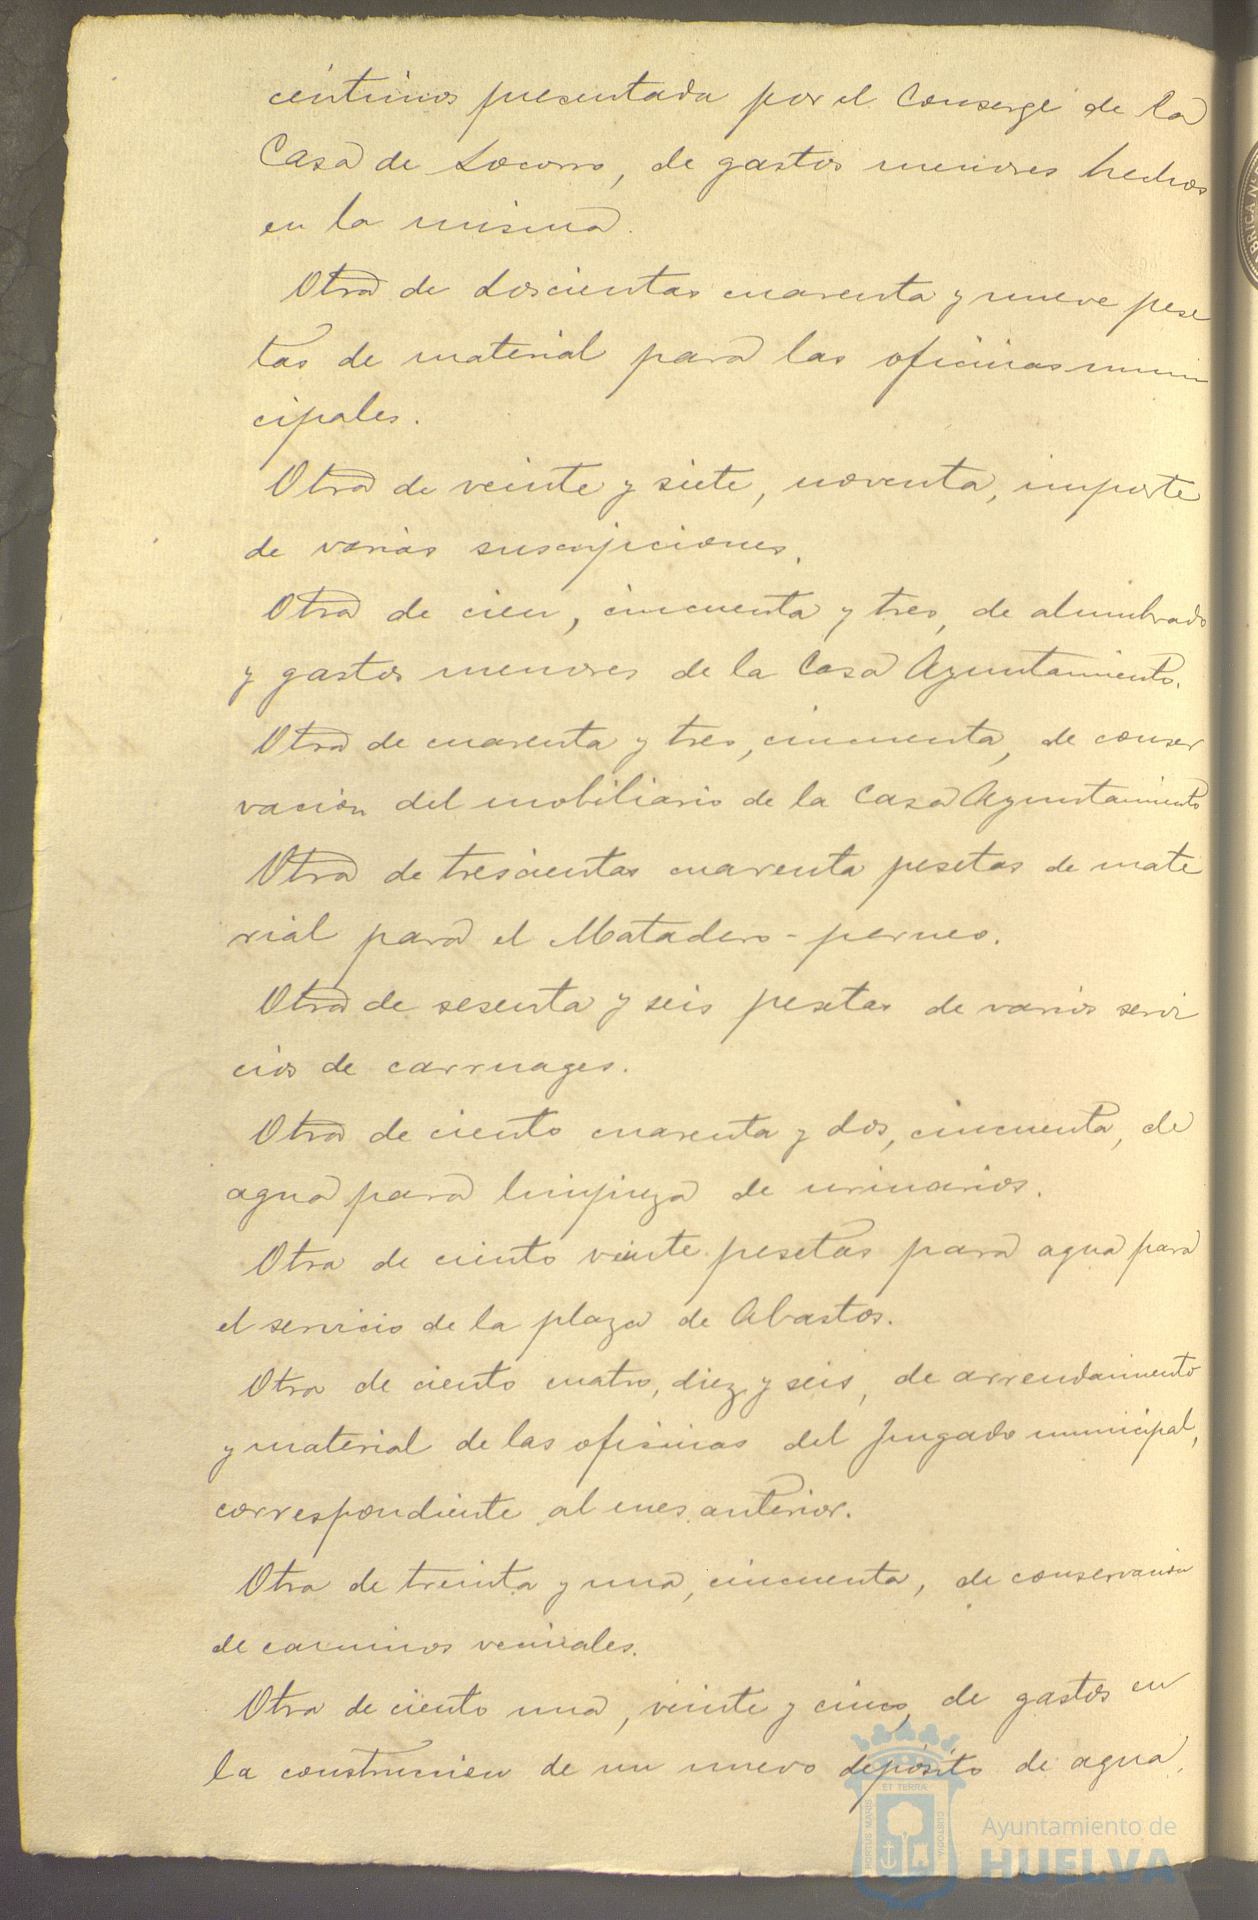 céntimos presentada por el Conserge de la
Casa de Socorro, de gastos menores hechos
en la misma.
Otra de doscientas cuarenta y nueve pese
tas de material para las oficinas muni
cipales.
Otra de veinte y siete, noventa, importe
de varias suscripciones.
Otra de cien, cincuenta y tres, de alumbrado
y gastos menores de la Casa Ayuntamiento.
Otra de cuarenta y tres, cincuenta, de conser
vación del mobiliario de la Casa Ayuntamiento
Otra de trescientas cuarenta pesetas de mate
rial para el Matadero-perneo.
Otra de sesenta y seis pesetas de varios servi
cios de carruages.
Otra de ciento cuarenta y dos, cincuenta, de
agua para limpieza de urinarios.
Otra de ciento veinte pesetas para agua para
el servicio de la plaza de Abastos.
Otra de ciento cuatro, diez y seis, de arrendamiento
y material de las oficinas del Juzgado municipal,
correspondiente al mes anterior.
Otra de treinta y una, cincuenta, de conservación
de caminos vecinales.
Otra de ciento una, veinte y cinco, de gastos en
la construcción de un nuevo depósito de agua,
PORTUS MARIS ET TERRAE CUSTODIA
Ayuntamiento de
HUELVA